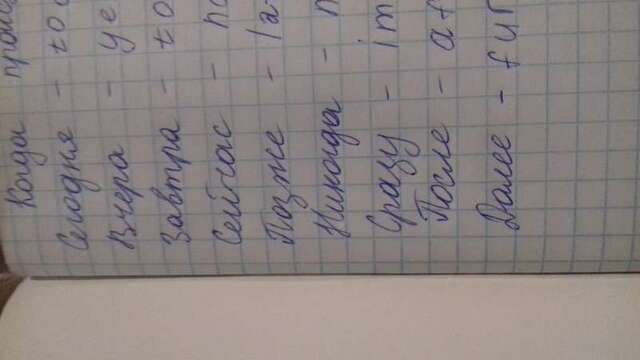 Когда
Сегодня - to
Вчера - ye
Завтра - to
Сейчас - no
Позже - la
Никогда - n
Сразу - im
После - af
Далее - fur